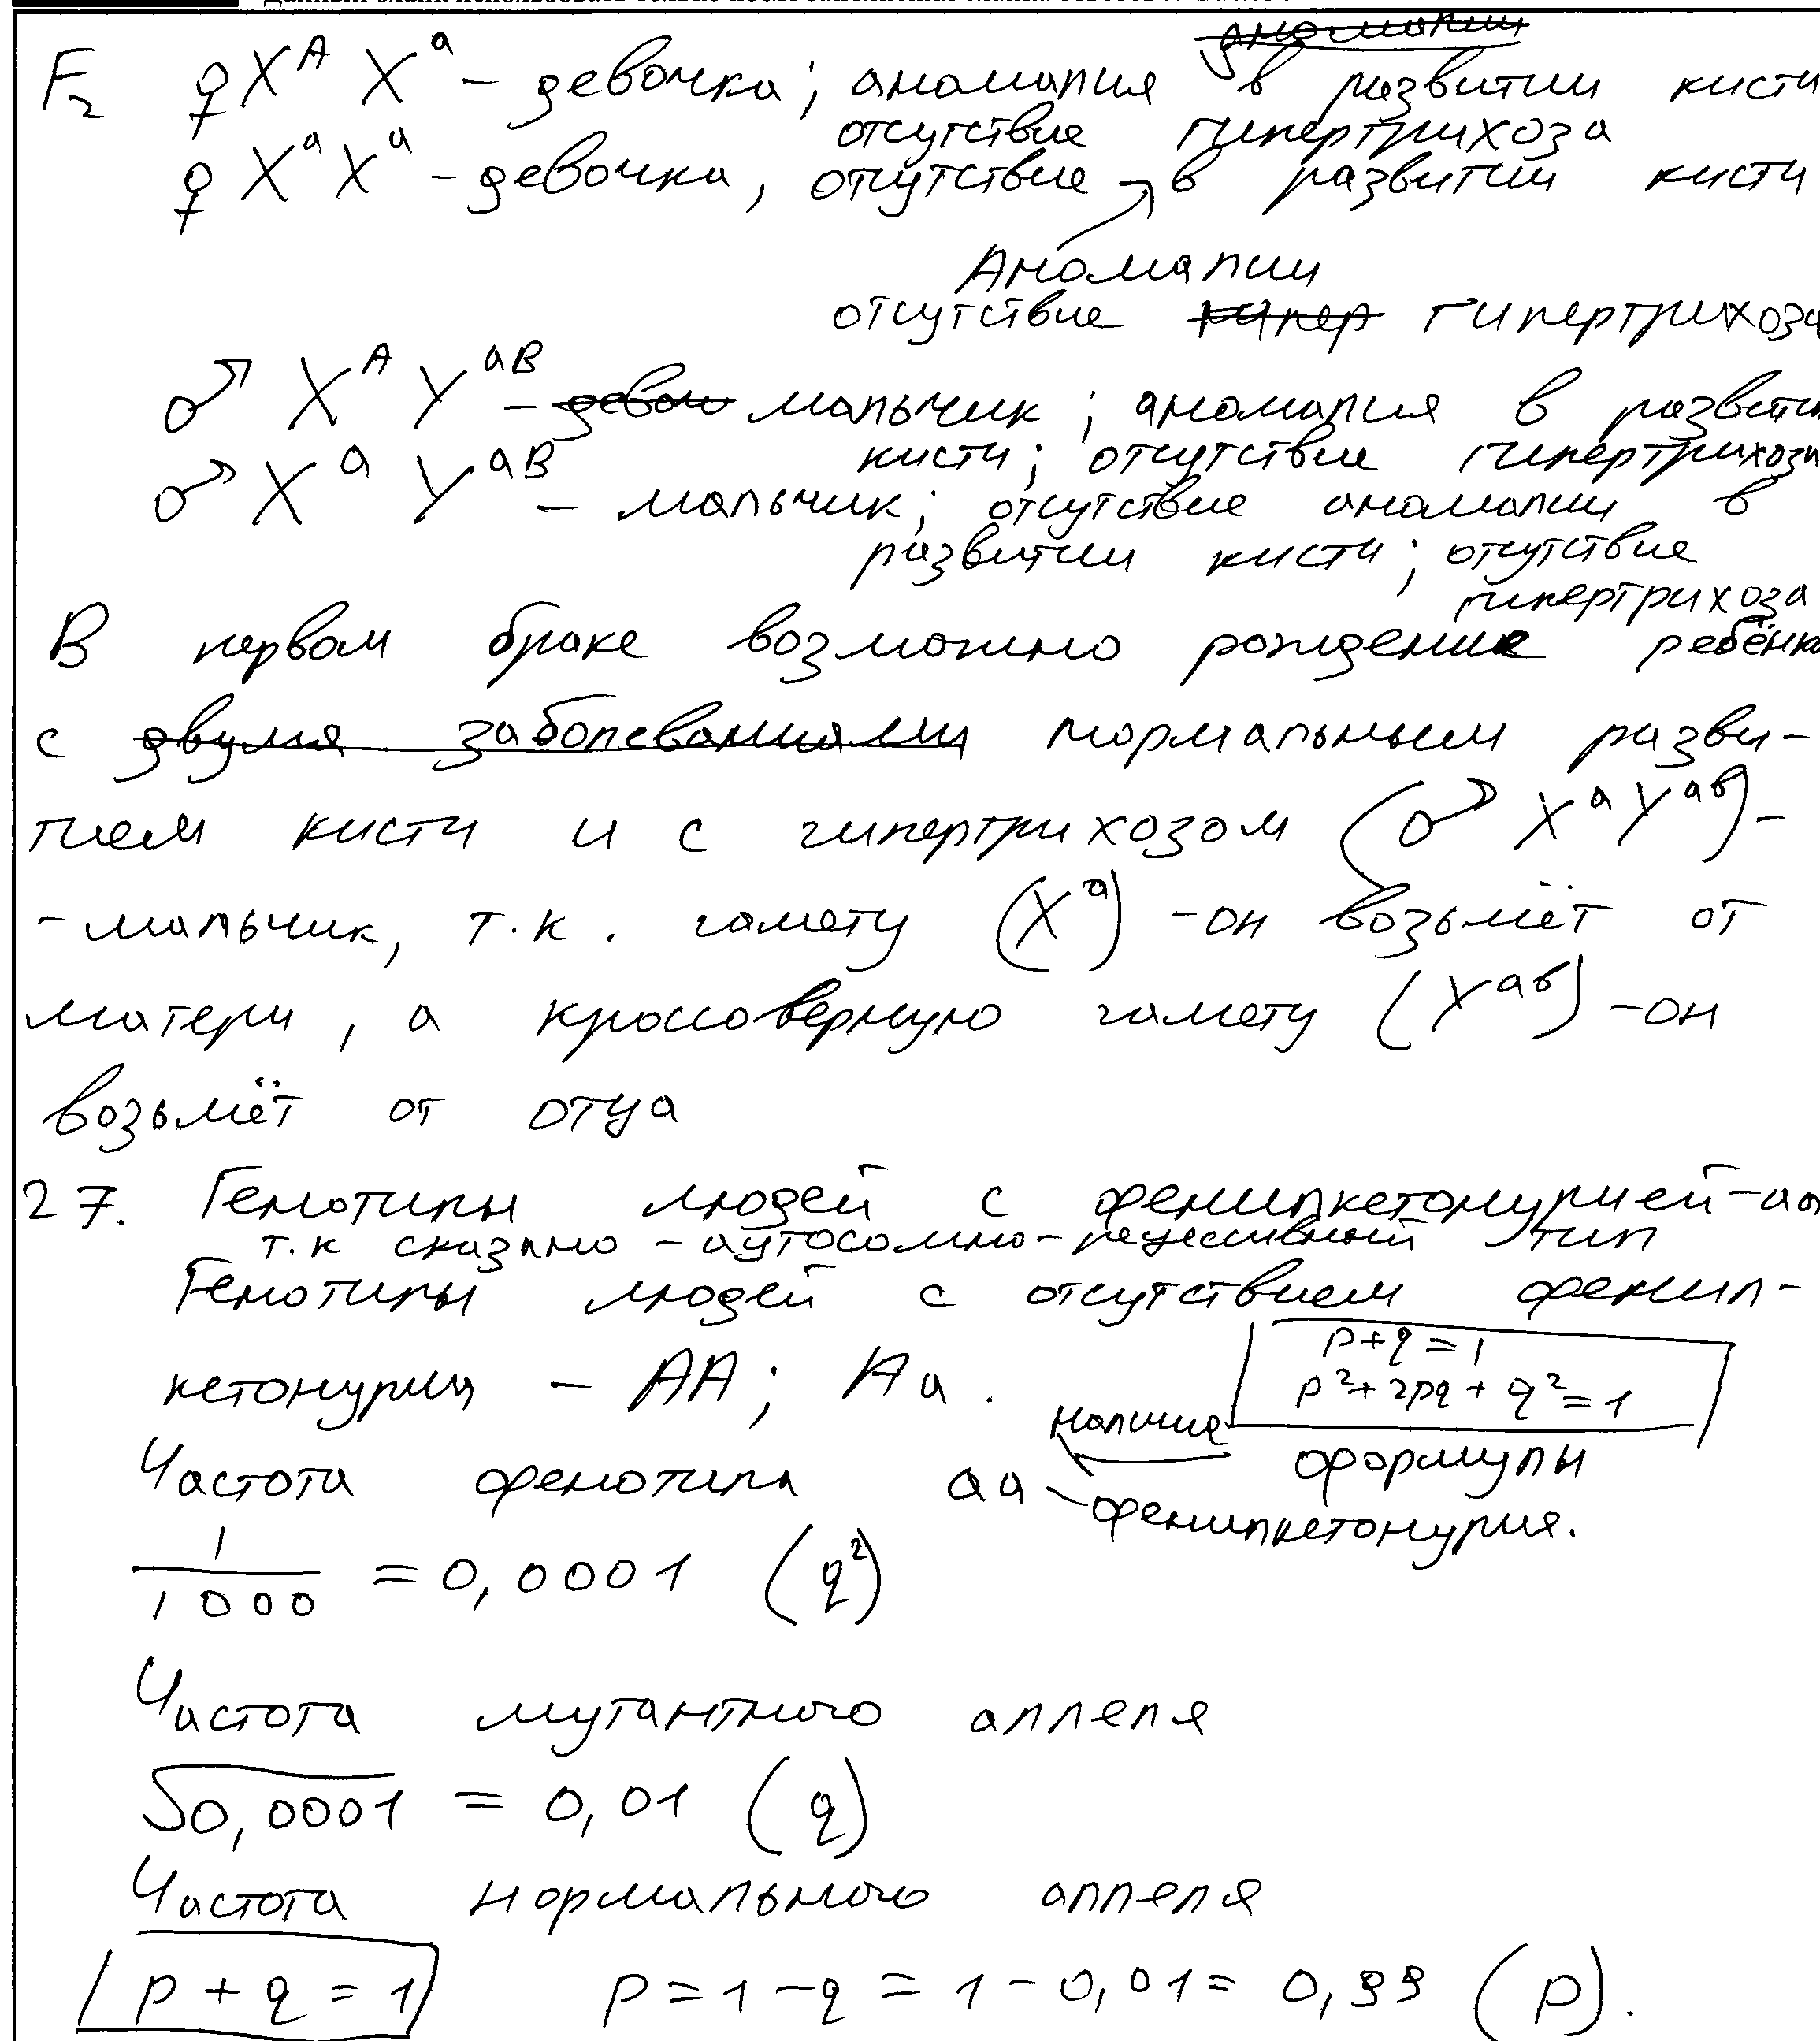 F₂ ♀ X^A X^a – девочка; аномалия в развитии кисти
отсутствие гипертрихоза
♀ X^a X^a – девочка, отсутствие в развитии кисти
Аномалии
отсутствие гипер гипертрихоза
♂ X^A Y^aB – мальчик; аномалия в развити
кисти; отсутствие гипертрихоза
♂ X^a Y^aB – мальчик; отсутствие аномалии в
развитии кисти; отсутствие
гипертрихоза
В первом браке возможно рождение ребёнка
с двумя заболеваниями нормальным разви-
тием кисти и с гипертрихозом (♂ X^a Y^ab) –
– мальчик, т.к. гамету (X^a) – он возьмёт от
матери, а кроссоверную гамету (Y^ab) – он
возьмёт от отца
27. Генотипы людей с фенилкетонурией – аа
т.к сказано – аутосомно-рецессивный тип
Генотипы людей с отсутствием фенил-
кетонурия – АА; Аа.
p+q=1
p²+2pq+q²=1
формулы
наличие
Частота фенотипа аа – фенилкетонурия.
1/1000 = 0,0001 (q²)
Частота мутантного аллеля
√0,0001 = 0,01 (q)
Частота нормального аллеля
p+q=1 p=1-q=1-0,01=0,99 (p).